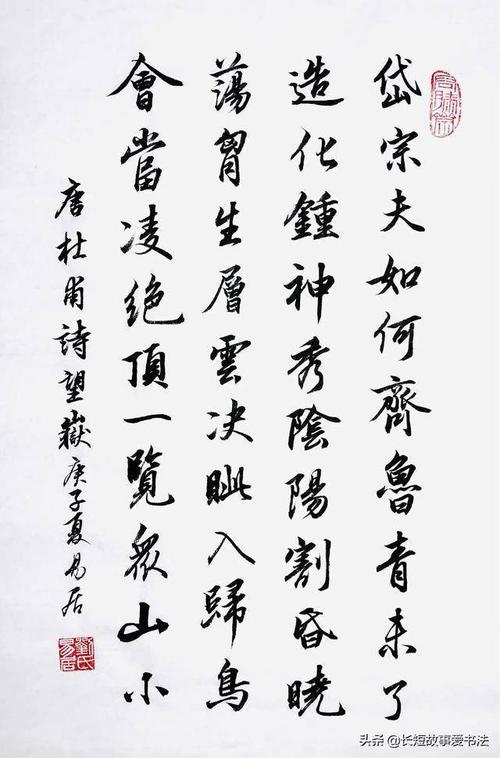 岱宗夫如何齊魯青未了
造化鍾神秀陰陽割昏曉
蕩胷生層雲决眦入歸鳥
會當凌絶頂一覽眾山小
唐杜甫詩望嶽庚子夏易居
劉氏易居
头条 @长短故事爱书法